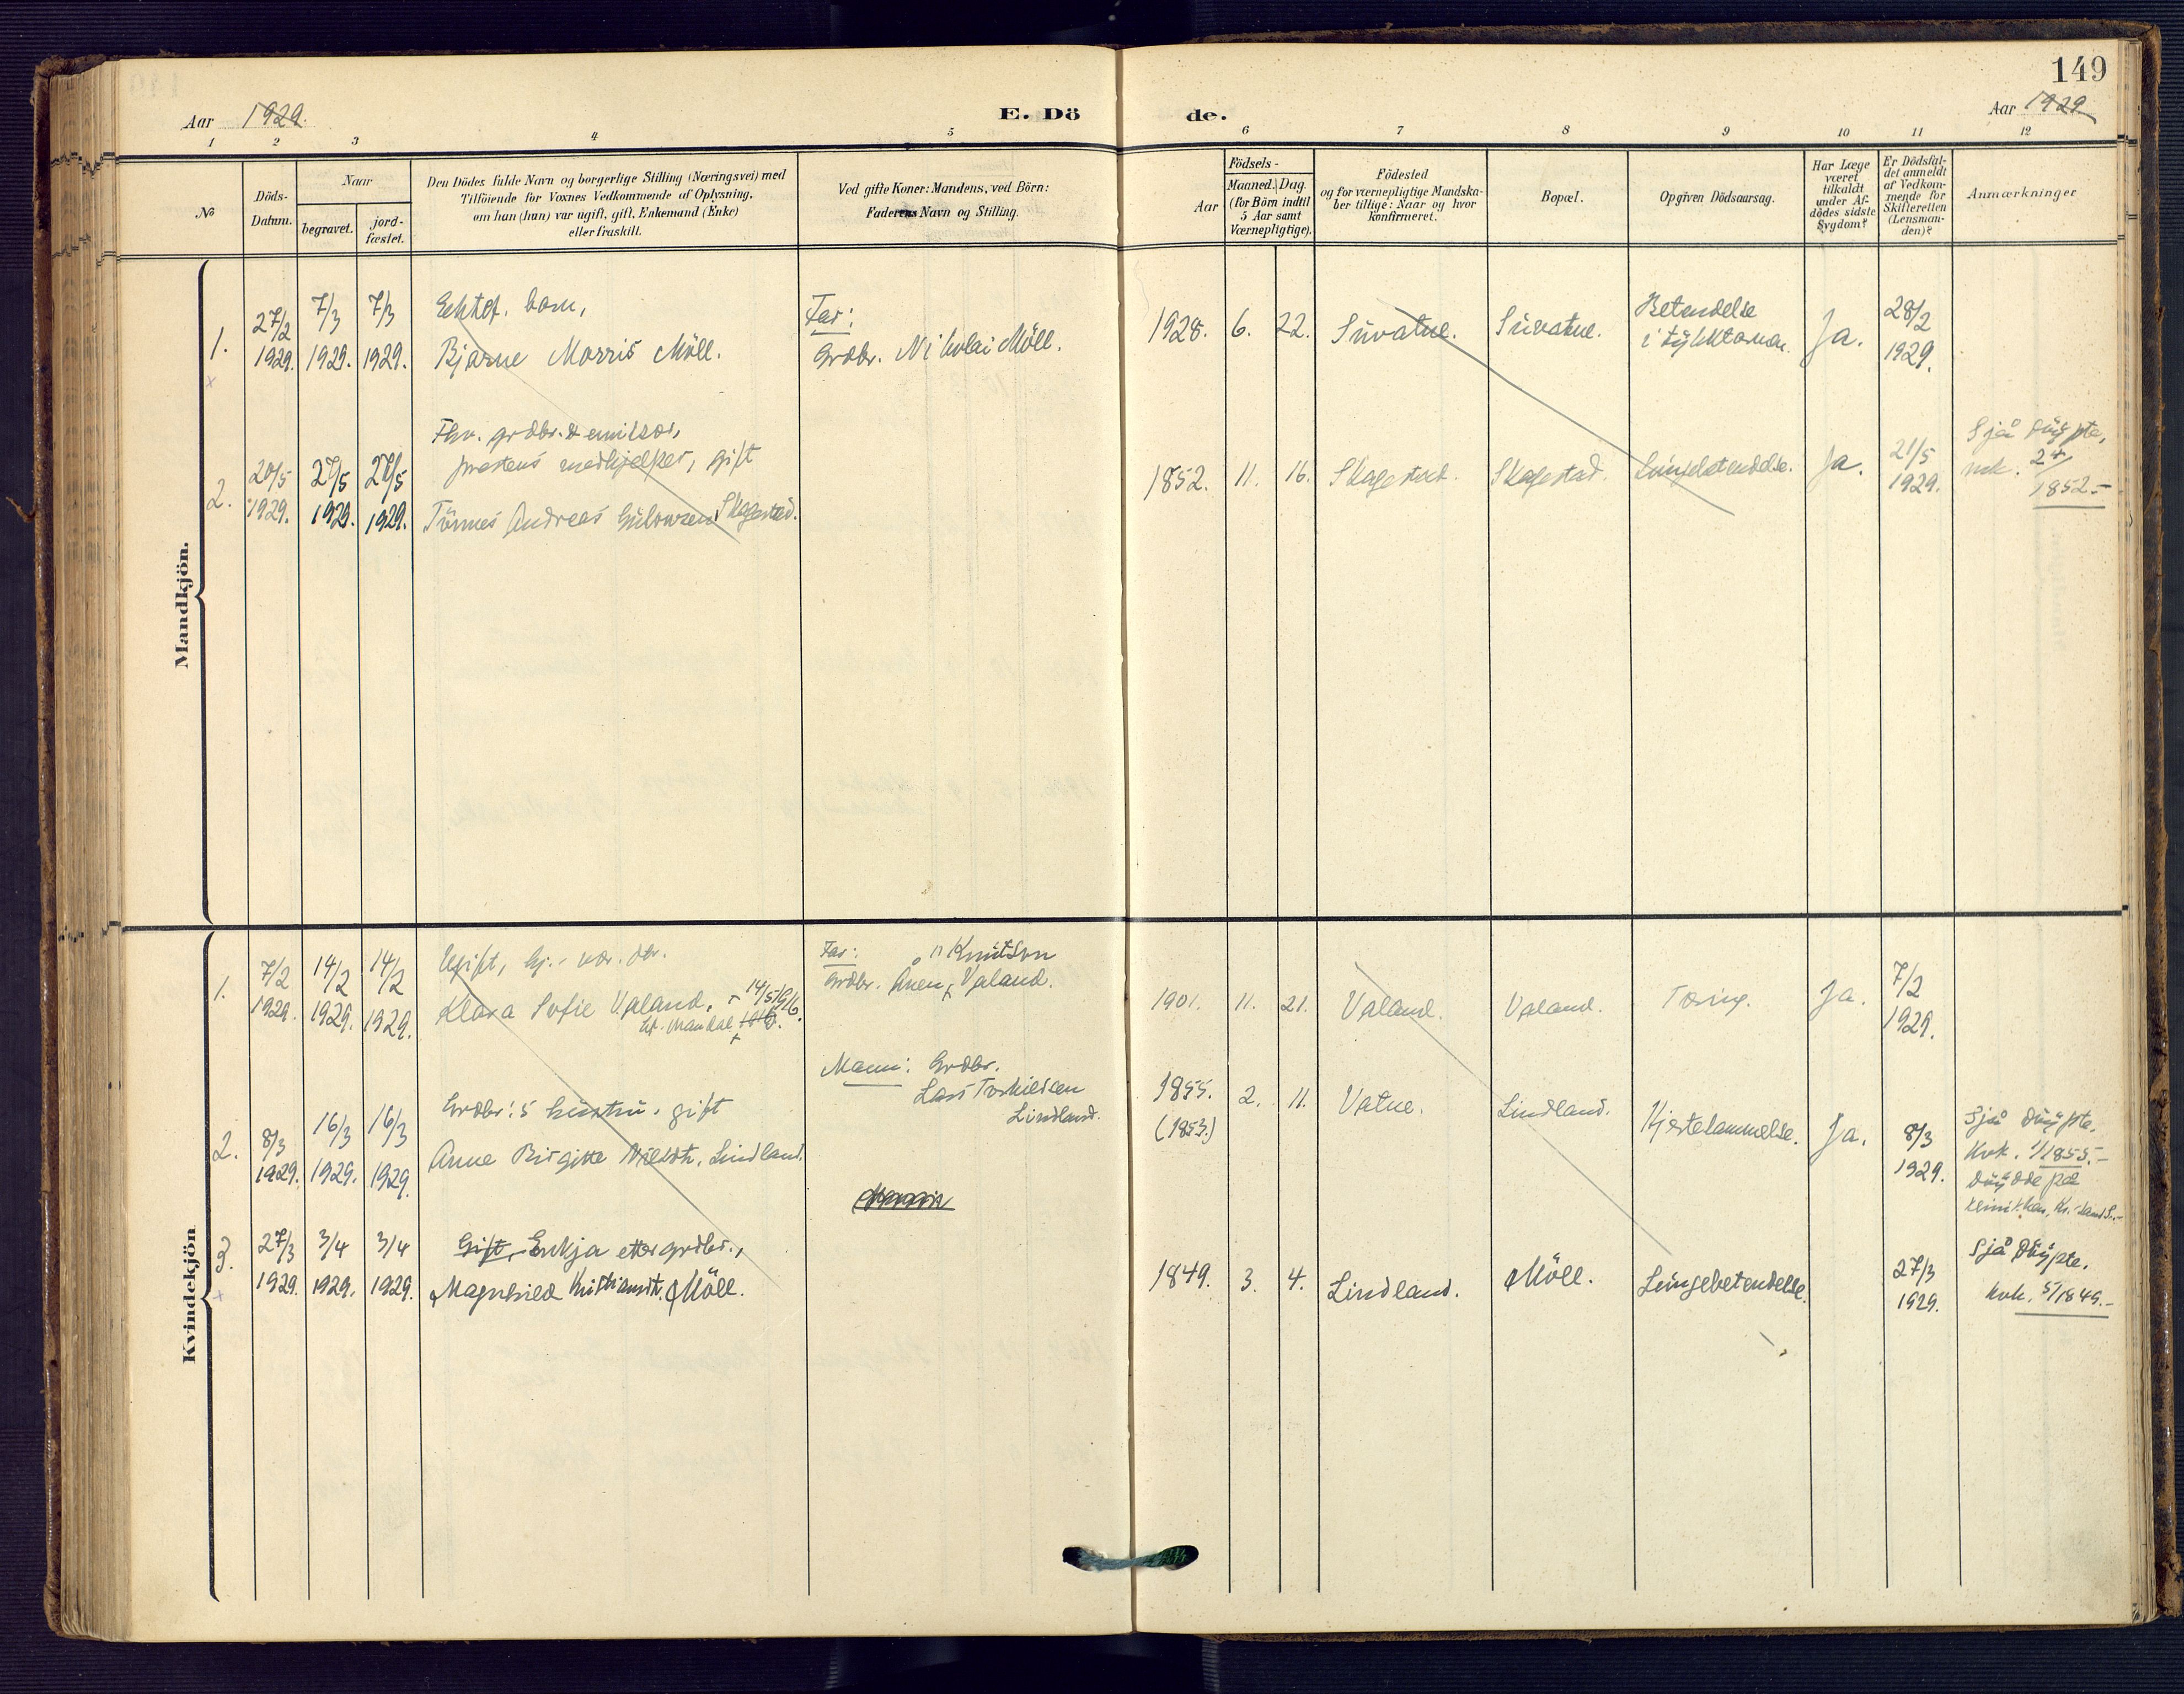 149
Aar 1929. E. Dö de. Aar 1929
1 2 3 4 5 6 7 8 9 10 11 12
No
Döds-
Datum.
Naar
begravet.
jord-
fæstet.
Den Dödes fulde Navn og borgerlige Stilling (Næringsvei) med
Tilföiende for Voxnes Vedkommende af Oplysning,
om han (hun) var ugift, gift, Enkemand (Enke)
eller fraskilt.
Ved gifte Koner: Mandens, ved Börn:
Faderens Navn og Stilling.
Födsels-
Aar
Maaned. Dag.
(for Börn indtil
5 Aar samt
Værnepligtige).
Födested
og for værnepligtige Mandska-
ber tillige: Naar og hvor
konfirmeret.
Bopæl.
Opgiven Dödsaarsag.
Har Læge
været
tilkaldt
under Af-
dödes sidste
Sygdom?
Er Dödsfal-
det anmeldt
af Vedkom-
mende for
Skifteretten
(Lensman-
den)?
Anmærkninger
Mandkjön.
1.
27/2
1929.
7/3
1929.
7/3
1929.
Ektef. barn,
Bjarne Morris Möll.
Far:
Grdbr. Nikolai Möll.
1928. 6. 22.
Suvatne.
Suvatne.
Betendelse
Ja.
28/2
1929.
2.
20/5
1929.
27/5
1929.
27/5
1929.
Fhv. grdbr. & emissær,
prestens medhjelper, gift
Tönnes Andreas Gulowsen Skagestad.
1852. 11. 16.
Skagestad.
Skagestad.
Lungebetendelse.
Ja.
21/5
1929.
Sjå döypte,
mk. 24/
1852.-
Kvindekjön
1.
7/2
1929.
14/2
1929.
14/2
1929.
Ugift, hj.-vær. dtr.
Klara Sofie Valand, + 14/5 1916.
Far: Knutson
Grdbr. Ånen Valand.
1901. 11. 21.
Valand.
Valand.
Tæring.
Ja.
7/2
1929.
2.
8/3
1929.
16/3
1929.
16/3
1929.
Grdbr.'s hustru, gift
Anne Birgitte Nilsdtr. Lindland.
Mann: Grdbr.
Lars Torkildsen
Lindland.
1855.
(1853.)
2. 11.
Vatne.
Lindland.
Hjertelammelse.
Ja.
8/3
1929.
Sjå döypte,
Kvk. 1/1855.-
Döydde på
3.
27/3
1929.
3/4
1929.
3/4
1929.
Gift, Enkja etter grdbr.,
Magnhild Kristiansdt. Möll.
1849. 3. 4.
Lindland.
Möll.
Lungebetendelse.
27/3
1929.
Sjå döypte,
kvk. 5/1849.-